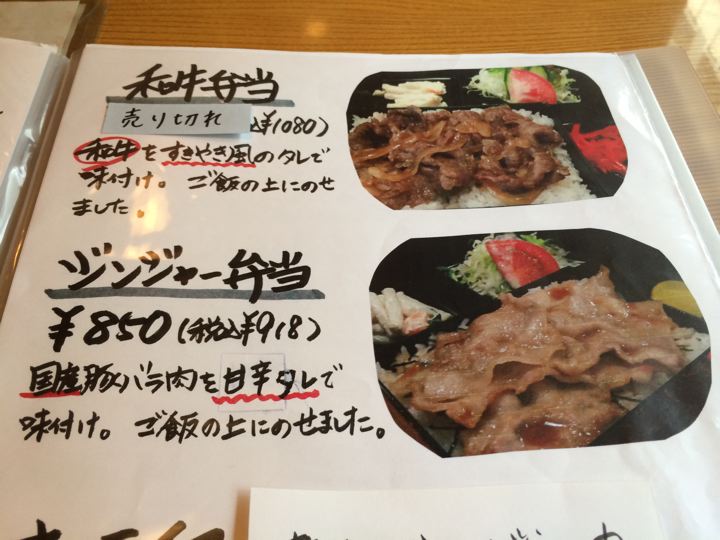 和牛弁当
売り切れ
込¥1080)
和牛をすきやき風のタレで
味付け。ご飯の上にのせ
ました。
ジンジャー弁当
¥850(税込¥918)
国産豚バラ肉を甘辛タレで
味付け。ご飯の上にのせました。